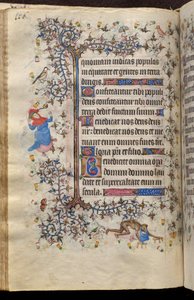 quoniam iudicas populos
in equitate et gentes in terra
dirigis
Confiteantur tibi populi
deus confiteantur tibi omnes
terra dedit fructum suum
Benedicat nos deus deus
noster benedicat nos deus et metu
ant eum omnes fines
Gloria patri et filio
Benedicite omnia op
domini domino lau
date et superexaltate eum in
secula